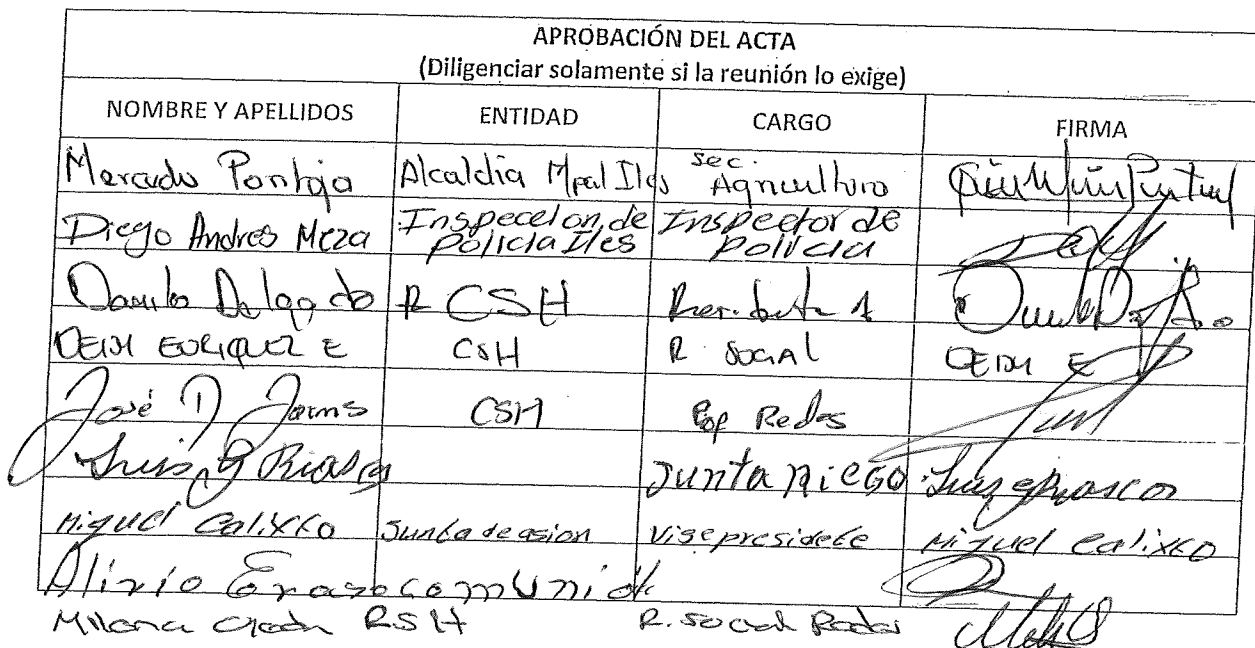 APROBACIÓN DEL ACTA
(Diligenciar solamente si la reunión lo exige)
NOMBRE Y APELLIDOS ENTIDAD CARGO FIRMA
Pantoja Alcaldia Mpal Iles sec. Agricultura
Diego Andres Meza Inspeccion de policia Iles Inspector de policia
Danilo Delgado CSH
DEISY ENRIQUEZ E CSH R SOCIAL DEISY E
José D CSH Redes
Luis Riascos Junta Riego Riascos
Miguel Calixto Junta de Visepresidete Miguel Calixto
Alirio Erazo comunida
R. Social Redes